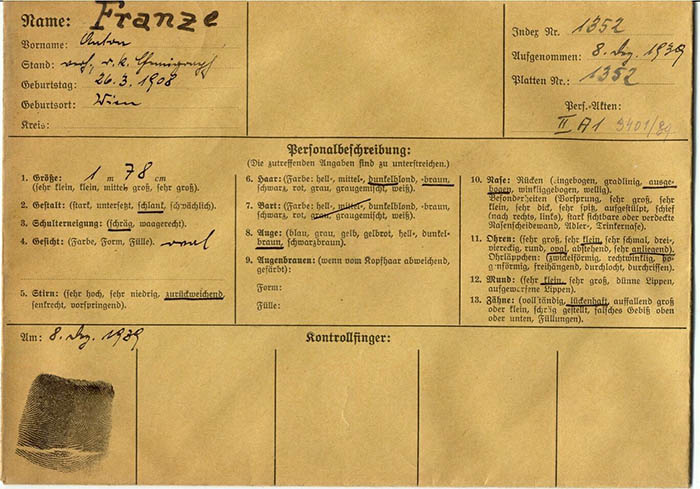 Name: Franze
Vorname: Anton
Stand: verh., r. k.
Geburtstag: 26.3.1908
Geburtsort: Wien
Kreis:
Index Nr. 1352
Aufgenommen: 8. Dez. 1939
Platten Nr.: 1352
Pers.-Akten:
II A1 3401/39
Personalbeschreibung:
(Die zutreffenden Angaben sind zu unterstreichen.)
1. Größe: 1 m 78 cm
(sehr klein, klein, mittel, groß, sehr groß).
2. Gestalt: (stark, untersetzt, schlank, schwächlich).
3. Schulterneigung: (schräg, waagerecht).
4. Gesicht: (Farbe, Form, Fülle). oval
5. Stirn: (sehr hoch, sehr niedrig, zurückweichend,
senkrecht, vorspringend).
6. Haar: (Farbe: hell-, mittel-, dunkelblond, -braun,
schwarz, rot, grau, graugemischt, weiß).
7. Bart: (Farbe: hell-, mittel-, dunkelblond, -braun,
schwarz, rot, grau, graugemischt, weiß).
8. Auge: (blau, grau, gelb, gelbrot, hell-, dunkel-
braun, schwarzbraun).
9. Augenbrauen: (wenn vom Kopfhaar abweichend,
gefärbt):
Form:
Fülle:
10. Nase: Rücken (eingebogen, gradlinig, ausge-
bogen, winkliggebogen, wellig).
Besonderheiten (Vorsprung, sehr groß, sehr
klein, sehr dick, sehr spitz, aufgestülpt, schief
(nach rechts, links), stark sichtbare oder verdeckte
Nasenscheidewand, Adler-, Trinkernase).
11. Ohren: (sehr groß, sehr klein, sehr schmal, drei-
viereckig, rund, oval, abstehend, sehr anliegend).
Ohrläppchen: (zwickelförmig, rechtwinklig, bo-
genförmig, freihängend, durchlocht, durchrissen).
12. Mund: (sehr klein, sehr groß, dünne Lippen,
aufgeworfene Lippen).
13. Zähne: (vollständig, lückenhaft, auffallend groß
oder klein, schräg gestellt, falsches Gebiß oben
oder unten, Füllungen).
Am: 8. Dez. 1939
Kontrollfinger: